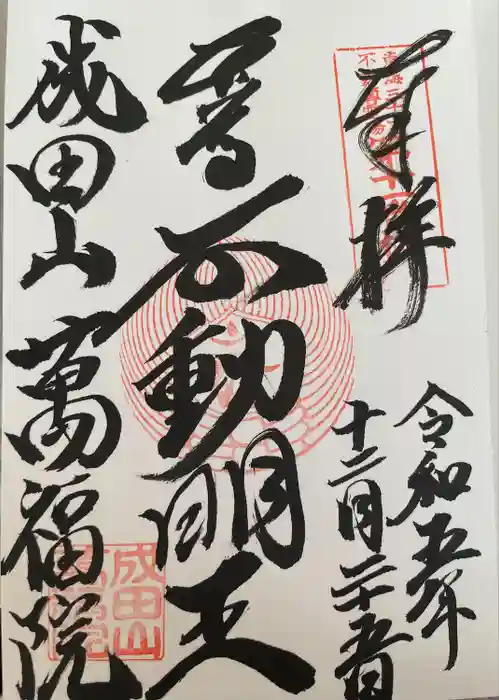 奉拝
令和五年
十二月二十五日
不動明王
成田山 萬福院
成田山
萬福院